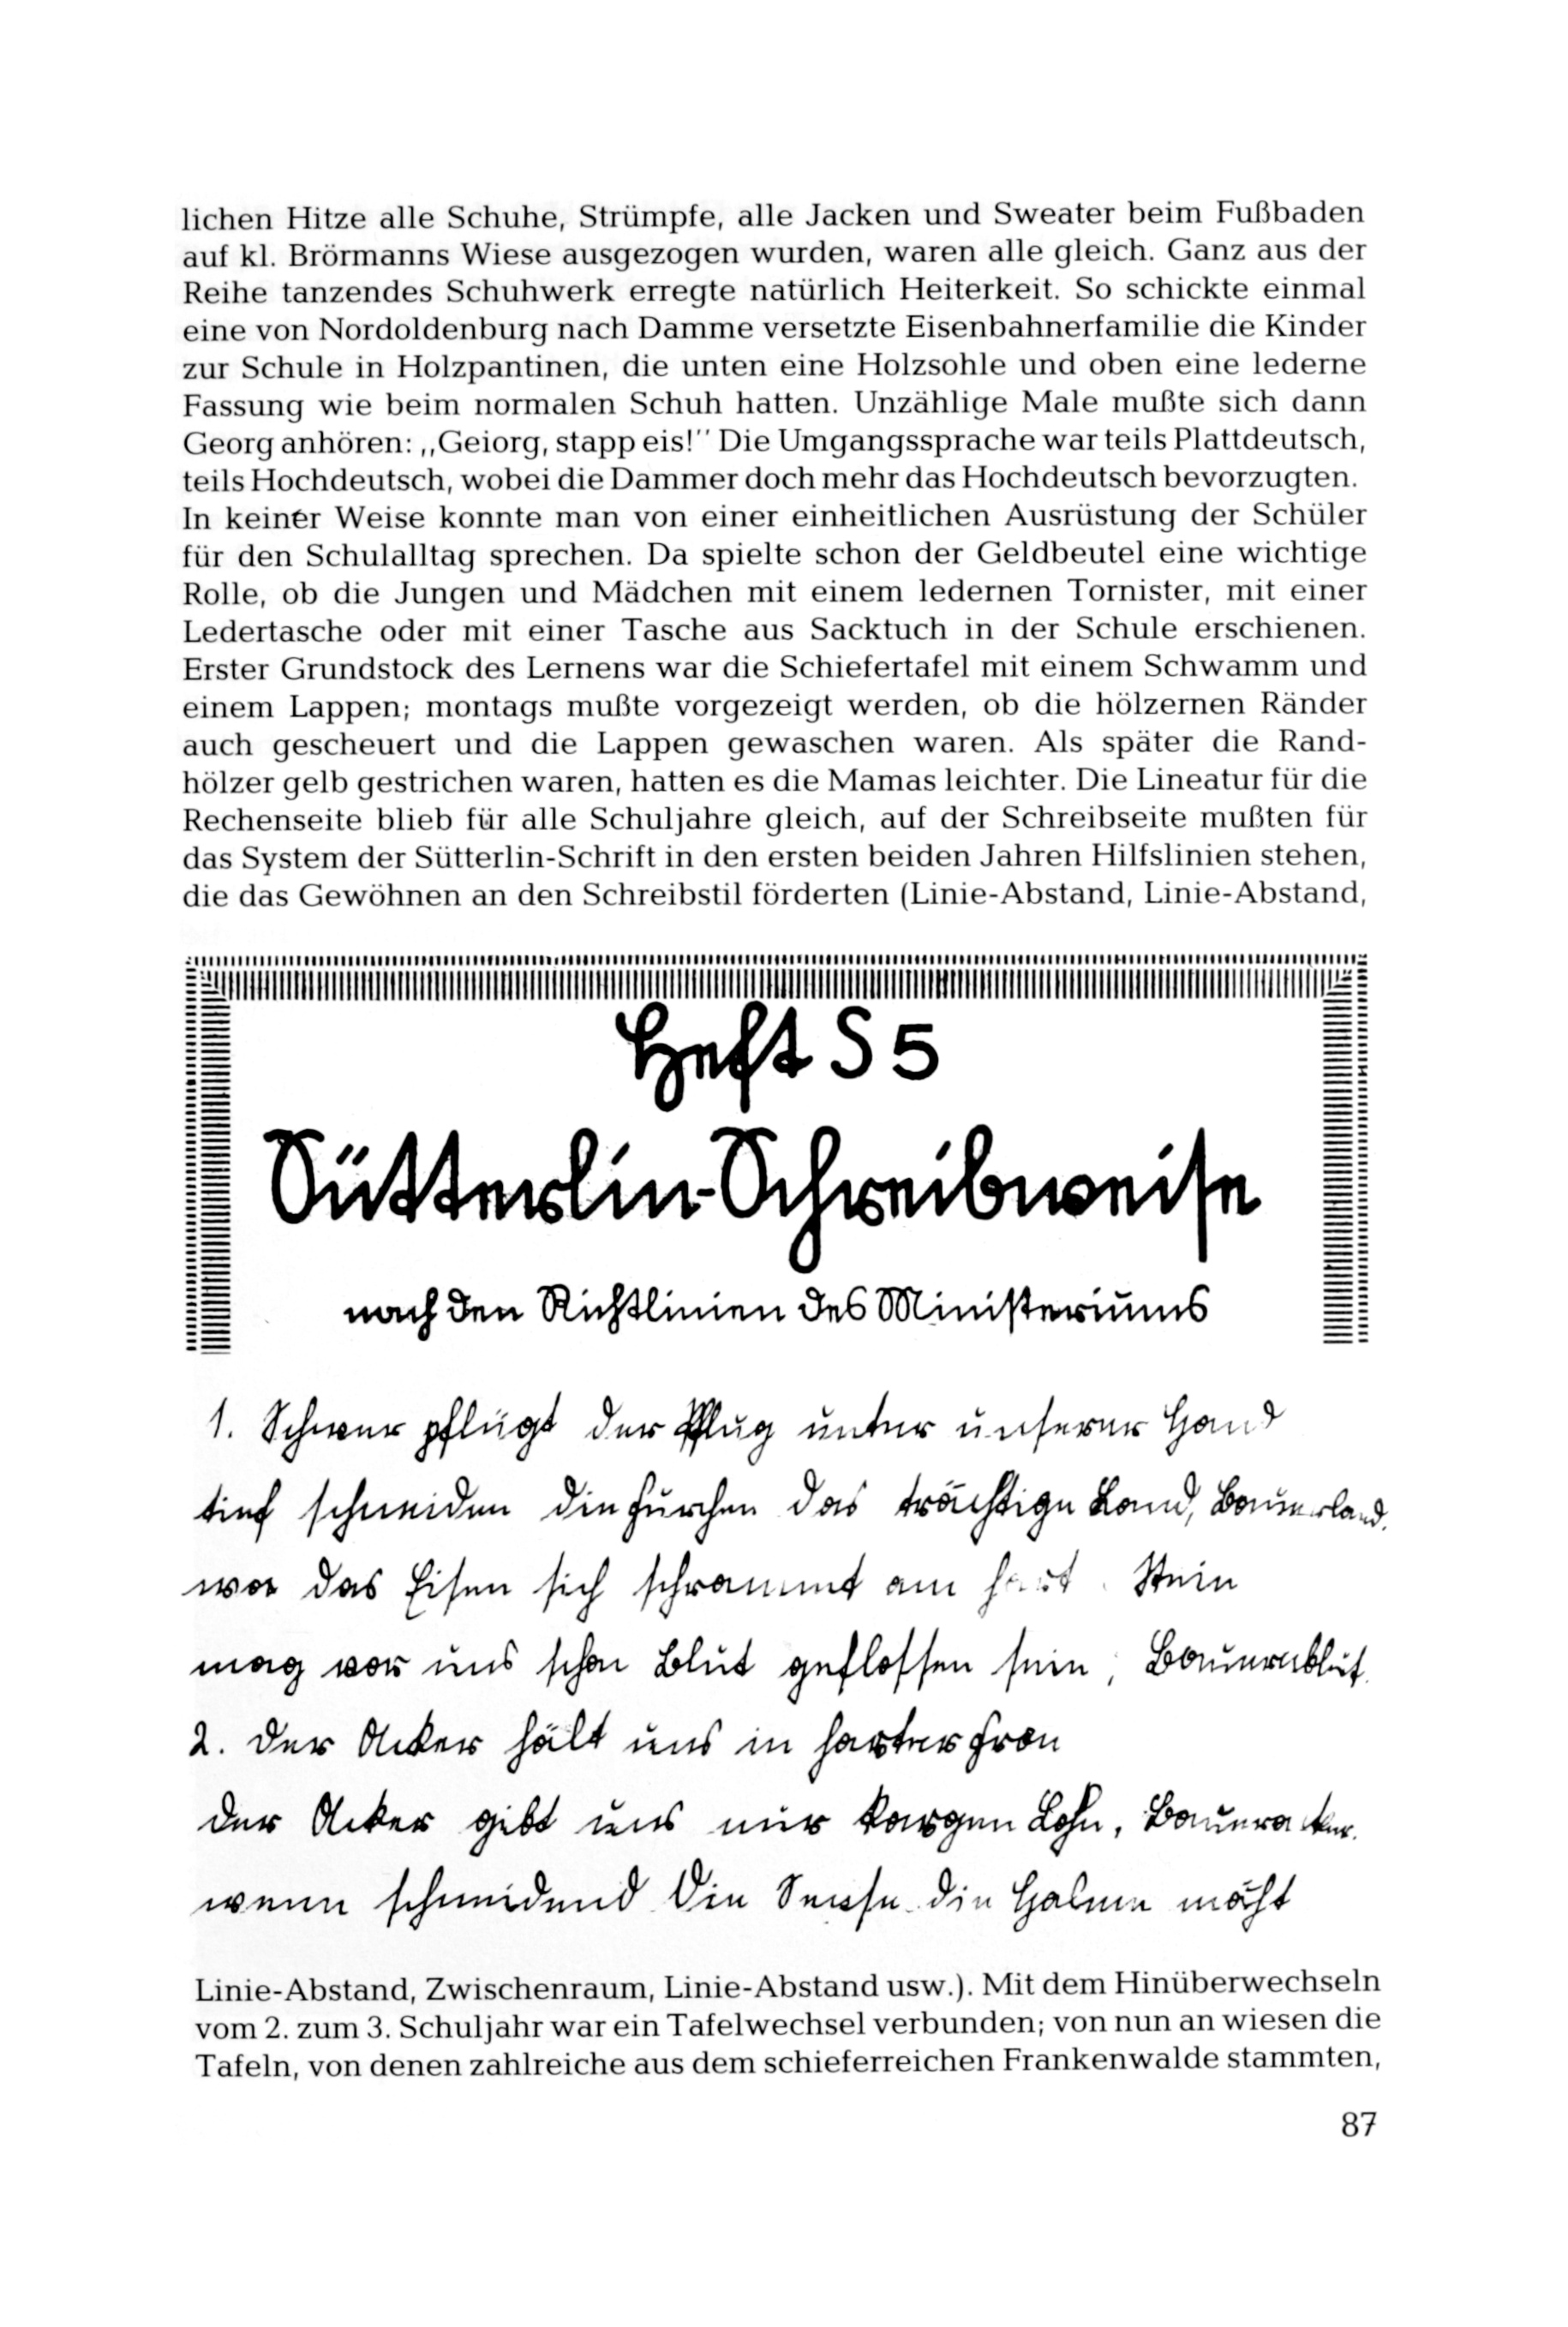 lichen Hitze alle Schuhe, Strümpfe, alle Jacken und Sweater beim Fußbaden
auf kl. Brörmanns Wiese ausgezogen wurden, waren alle gleich. Ganz aus der
Reihe tanzendes Schuhwerk erregte natürlich Heiterkeit. So schickte einmal
eine von Nordoldenburg nach Damme versetzte Eisenbahnerfamilie die Kinder
zur Schule in Holzpantinen, die unten eine Holzsohle und oben eine lederne
Fassung wie beim normalen Schuh hatten. Unzählige Male mußte sich dann
Georg anhören: ,,Geiorg, stapp eis!'' Die Umgangssprache war teils Plattdeutsch,
teils Hochdeutsch, wobei die Dammer doch mehr das Hochdeutsch bevorzugten.
In keiner Weise konnte man von einer einheitlichen Ausrüstung der Schüler
für den Schulalltag sprechen. Da spielte schon der Geldbeutel eine wichtige
Rolle, ob die Jungen und Mädchen mit einem ledernen Tornister, mit einer
Ledertasche oder mit einer Tasche aus Sacktuch in der Schule erschienen.
Erster Grundstock des Lernens war die Schiefertafel mit einem Schwamm und
einem Lappen; montags mußte vorgezeigt werden, ob die hölzernen Ränder
auch gescheuert und die Lappen gewaschen waren. Als später die Rand-
hölzer gelb gestrichen waren, hatten es die Mamas leichter. Die Lineatur für die
Rechenseite blieb für alle Schuljahre gleich, auf der Schreibseite mußten für
das System der Sütterlin-Schrift in den ersten beiden Jahren Hilfslinien stehen,
die das Gewöhnen an den Schreibstil förderten (Linie-Abstand, Linie-Abstand,
Heft S 5
Sütterlin-Schreibweise
nach den Richtlinien des Ministeriums
1. Schwer pflügt der Pflug unter unserer Hand
tief schneiden die Furchen das trächtige Land, Bauerland.
wo das Eisen sich schrammt am Stein
mag vor uns schon Blut geflossen sein, Bauernblut.
2. Der Acker hält uns in harter Fron
der Acker gibt uns nur kargen Lohn, Baueracker.
wenn schneidend die Sense die Halme mäht
Linie-Abstand, Zwischenraum, Linie-Abstand usw.). Mit dem Hinüberwechseln
vom 2. zum 3. Schuljahr war ein Tafelwechsel verbunden; von nun an wiesen die
Tafeln, von denen zahlreiche aus dem schieferreichen Frankenwalde stammten,
87